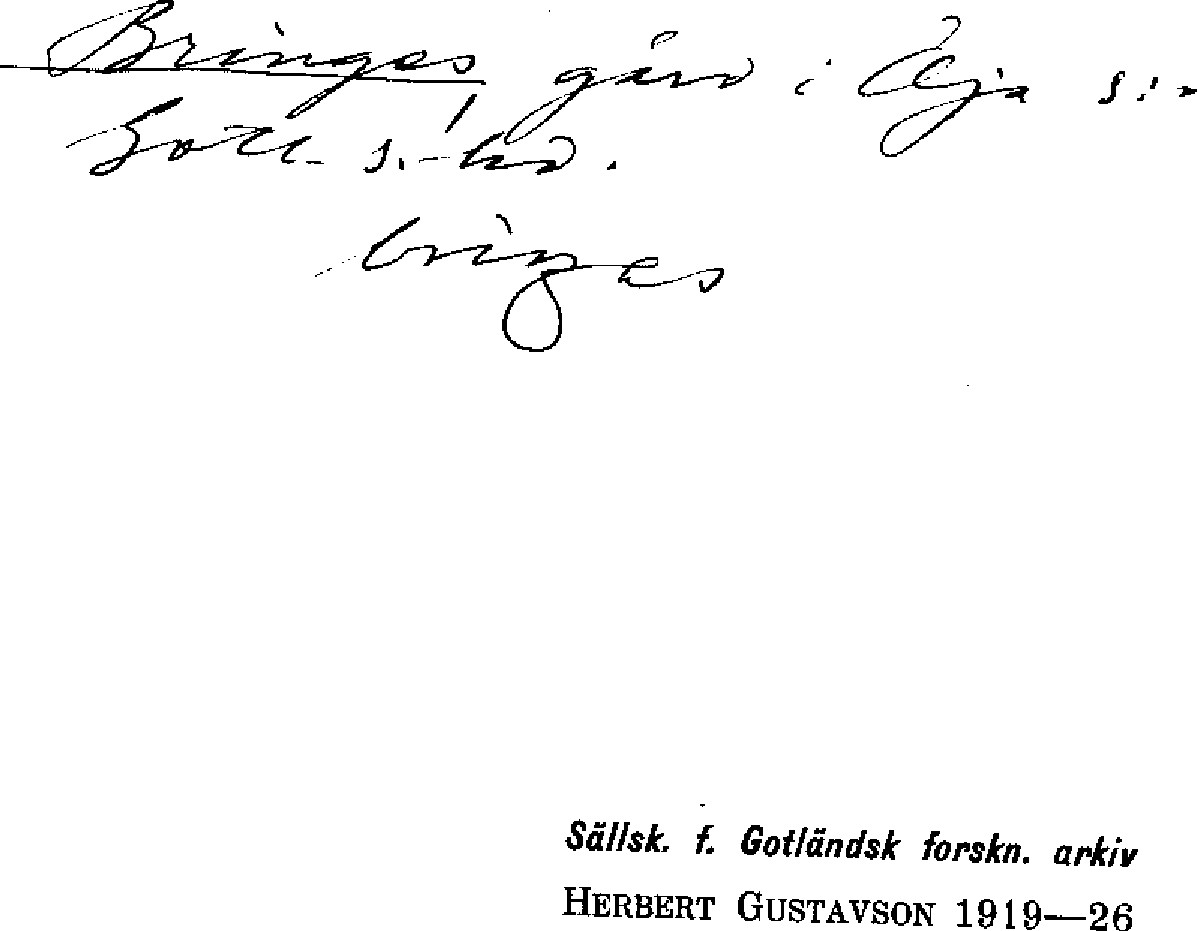 Bringes, gård i Öja s:n
Gotl. s. hd.
bringes
Sällsk. f. Gotländsk forskn. arkiv
HERBERT GUSTAVSON 1919—26